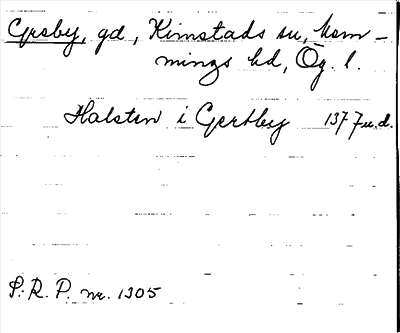 Gesby, gd, Kimstads sn, Mem-
mings hd, Ög. l.
Halsten i Gertby 1377 u.d.
S. R. P. nr. 1305